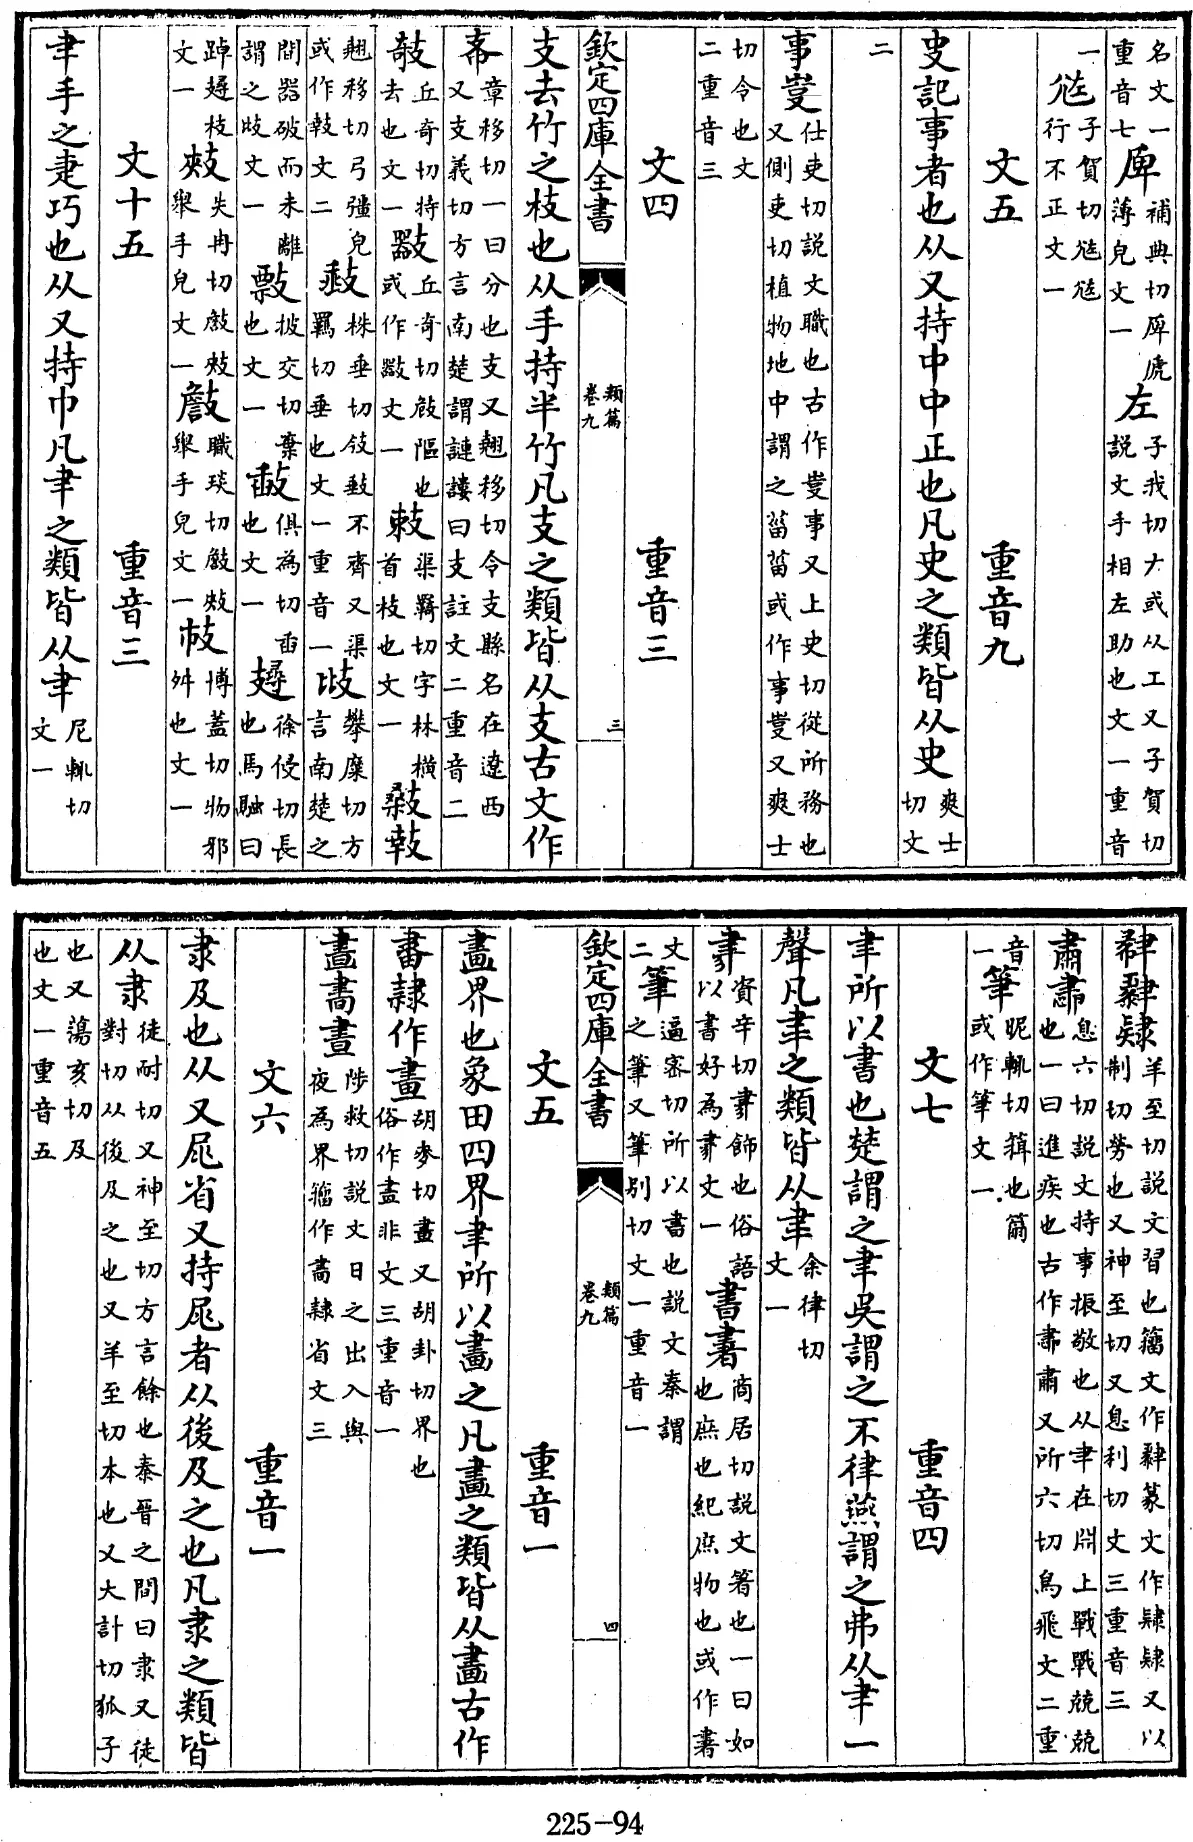 名文一重音七 補典切虒薄皃文一 左子我切𠂇或从工又子賀切說文手相左助也文一重音
一 子賀切行不正文一
文五 重音九
史記事者也从又持中中正也凡史之類皆从史爽士切文
二
事㕝仕吏切說文職也古作事又上史切從所務也又側吏切植物地中謂之菑菑或作事又爽士
切令也文二重音三
文四 重音三
欽定四庫全書 類篇 卷九 三
支去竹之枝也从手持半竹凡支之類皆从支古文作
章移切一曰分也支又翹移切令支縣名在遼西又支義切方言南楚謂謰謱曰支註文二重音二
攲丘奇切持去也文一 丘奇切㩻陋也或作文一 渠羈切字林橫首枝也文一
翹移切弓彊皃或作文二 株垂切不齊又渠羈切垂也文一重音一 歧攀糜切方言南楚之
間器破而未離謂之歧文一 披交切棄也文一 俱為切也文一 徐侵切長也馬融曰
踔枝文一 失冉切舉手皃文一 職琰切舉手皃文一 博蓋切物邪舛也文一
文十五 重音三
𦘒手之疌巧也从又持巾凡𦘒之類皆从𦘒尼輒切文一
肄羊至切說文習也籀文作篆文作又以制切勞也又神至切又息利切文三重音三
肅息六切說文持事振敬也从𦘒在𣶒上戰戰兢兢也一曰進疾也古作肅又所六切鳥飛文二重
音一 昵輒切箝也或作文一
文七 重音四
聿所以書也楚謂之聿吳謂之不律燕謂之弗从𦘒一
聲凡聿之類皆从聿余律切文一
資辛切飾也俗語以書好為文一 書商居切說文箸也一曰如也庶也紀庶物也或作書
文二 筆逼密切所以書也說文秦謂之筆又筆別切文一重音一
文五 重音一
欽定四庫全書 類篇 卷九 四
畫界也象田四界聿所以畫之凡畫之類皆从畫古作
隸作畫胡麥切畫又胡卦切界也俗作畫非文三重音一
晝陟救切說文日之出入與夜為界籀作隸省文三
文六 重音一
隶及也从又㞑省又持㞑者从後及之也凡隶之類皆
从隶徒耐切又神至切方言餘也秦晉之間曰隶又徒對切从後及之也又羊至切本也又大計切狐子
也又蕩亥切及也文一重音五
225-94